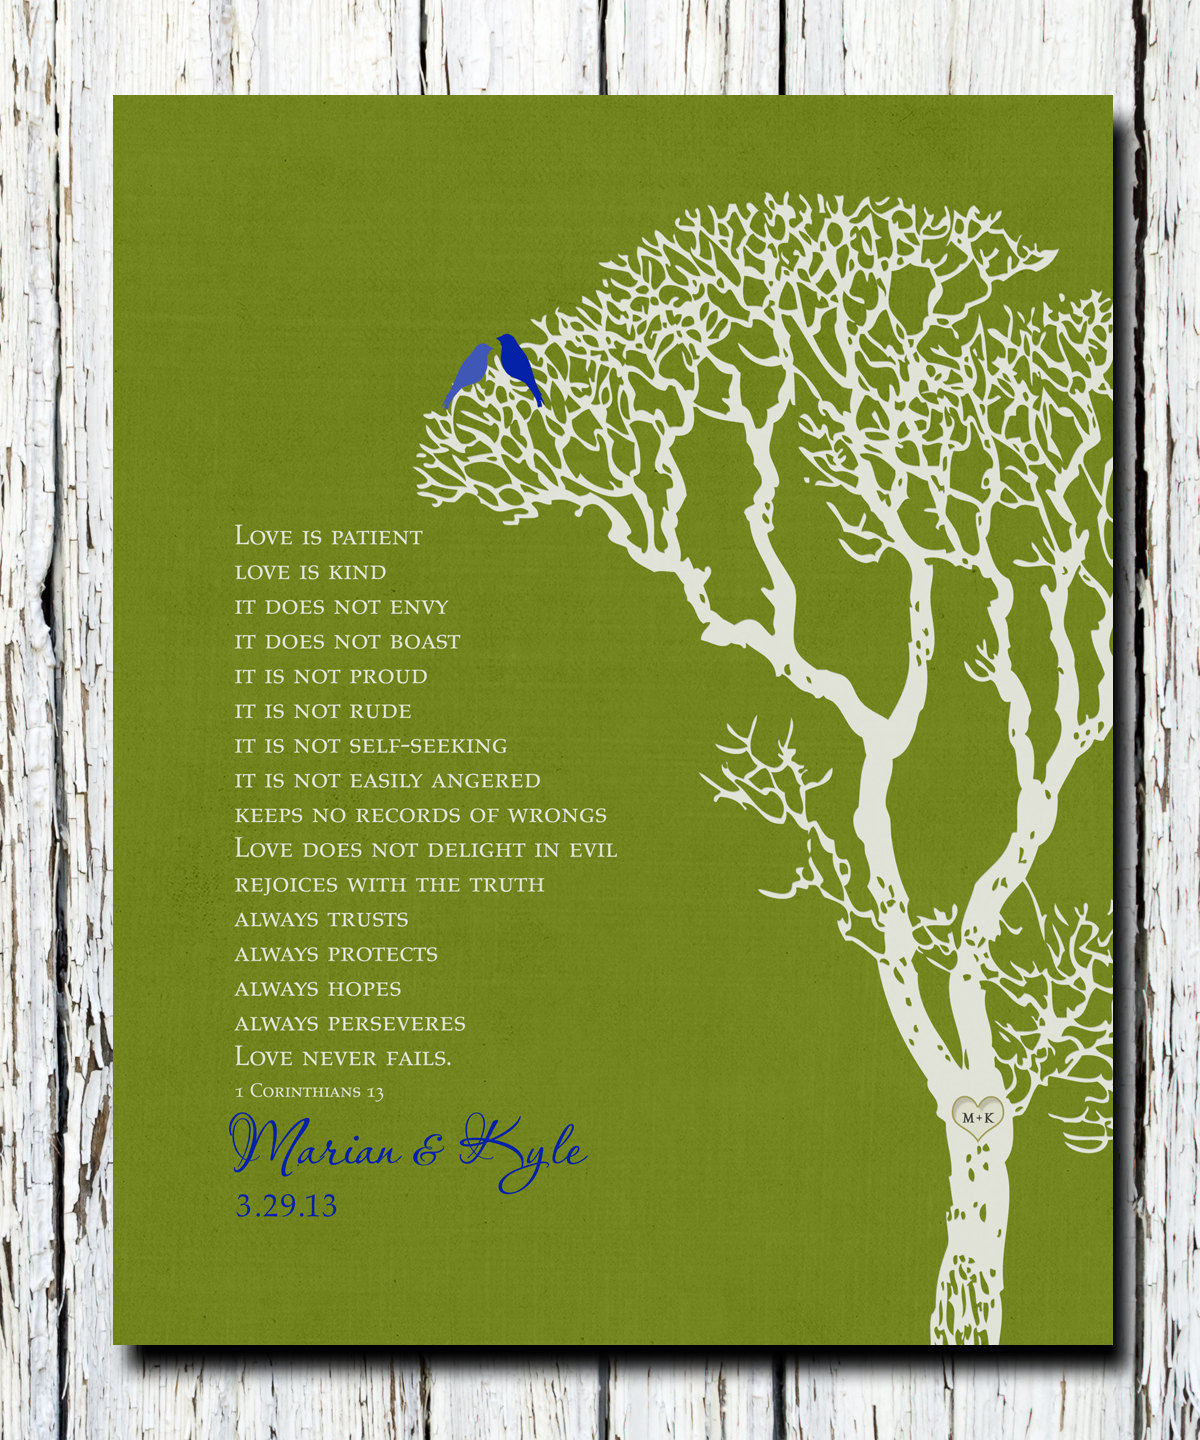 Love is patient
love is kind
it does not envy
it does not boast
it is not proud
it is not rude
it is not self-seeking
it is not easily angered
keeps no records of wrongs
Love does not delight in evil
rejoices with the truth
always trusts
always protects
always hopes
always perseveres
Love never fails.
1 Corinthians 13
M+K
Marian & Kyle
3.29.13